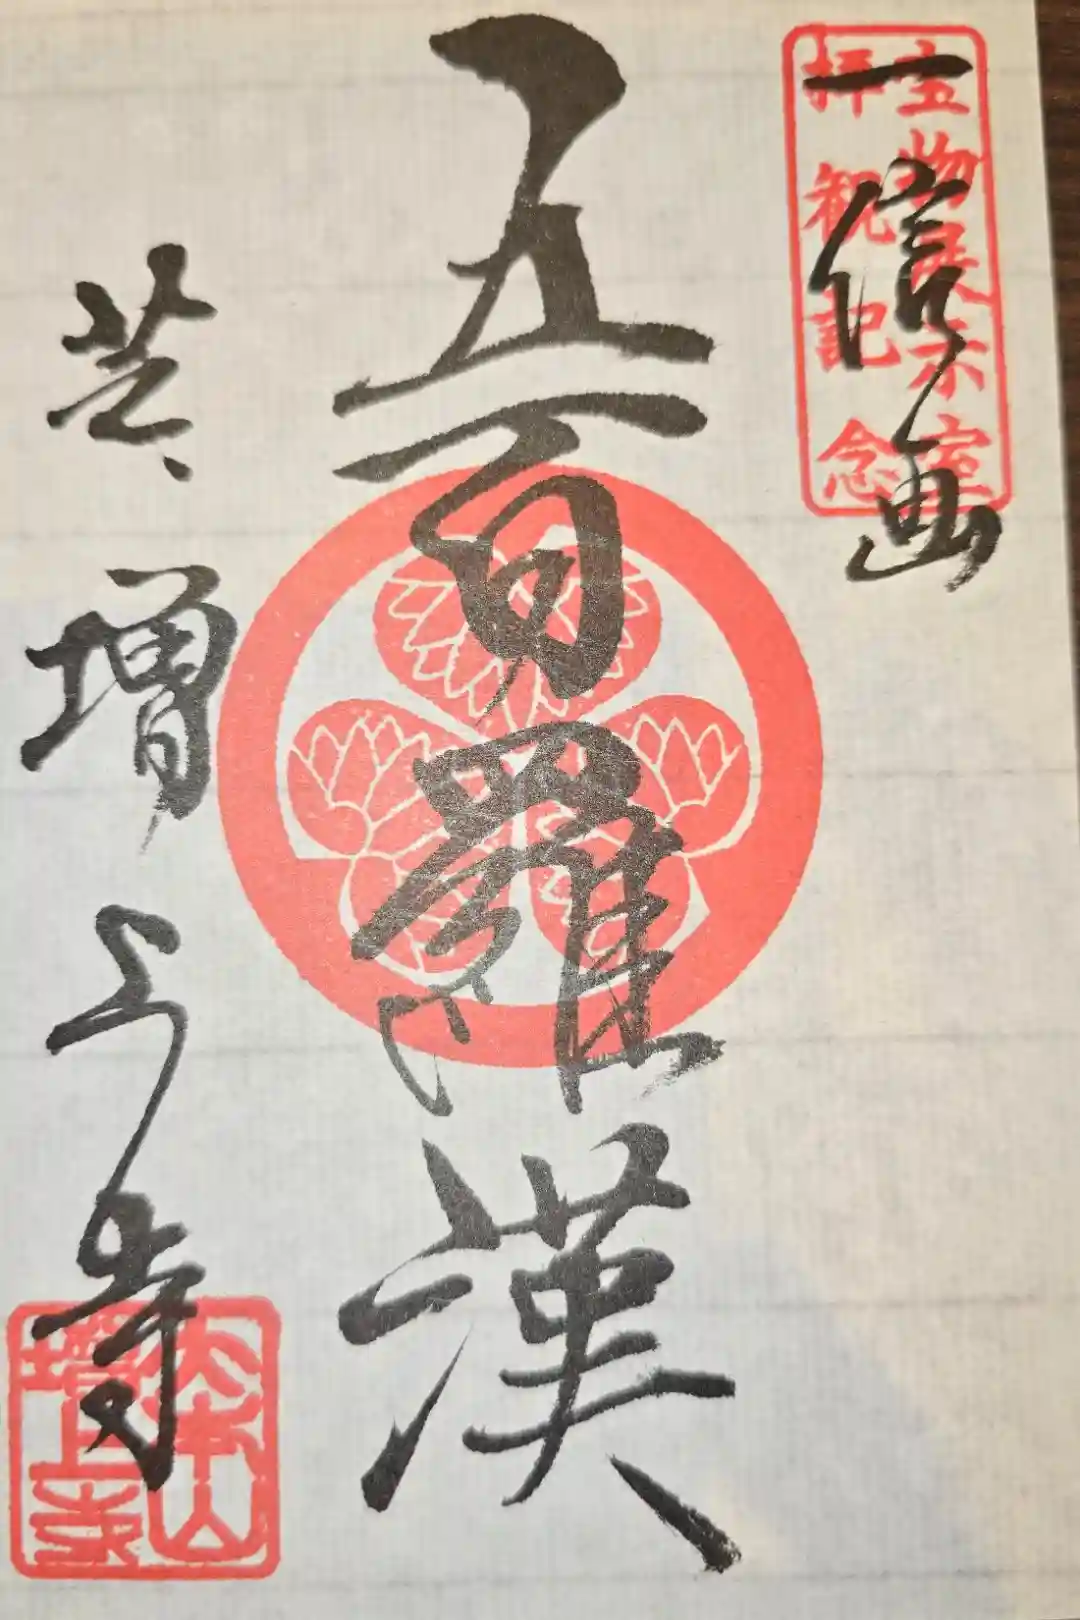 宝物展示室
拝観記念
一信画
五百羅漢
芝 増上寺
大本山
増上寺